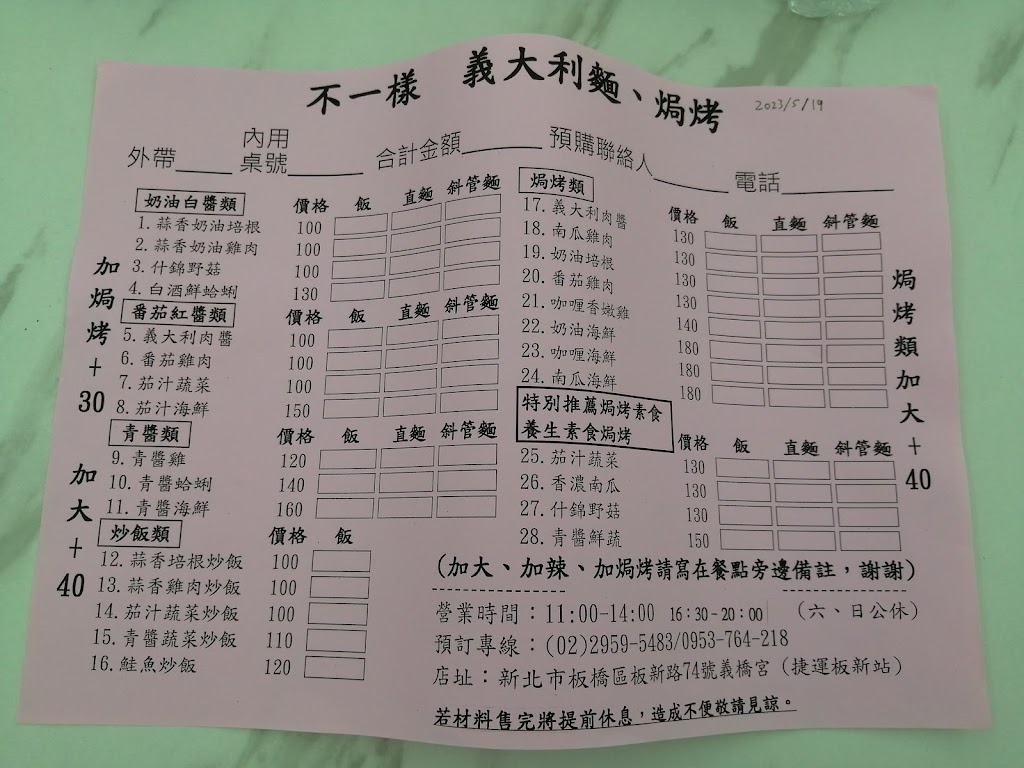 不一樣 義大利麵、焗烤
2023/5/19
外帶____ 內用桌號______ 合計金額______ 預購聯絡人______ 電話________
奶油白醬類 價格 飯 直麵 斜管麵
1. 蒜香奶油培根 100
2. 蒜香奶油雞肉 100
3. 什錦野菇 100
4. 白酒鮮蛤蜊 130
番茄紅醬類 價格 飯 直麵 斜管麵
5. 義大利肉醬 100
6. 番茄雞肉 100
7. 茄汁蔬菜 100
8. 茄汁海鮮 150
加焗烤+30
青醬類 價格 飯 直麵 斜管麵
9. 青醬雞 120
10. 青醬蛤蜊 140
11. 青醬海鮮 160
炒飯類 價格 飯
12. 蒜香培根炒飯 100
13. 蒜香雞肉炒飯 100
14. 茄汁蔬菜炒飯 100
15. 青醬蔬菜炒飯 110
16. 鮭魚炒飯 120
加大+40
焗烤類 價格 飯 直麵 斜管麵
17. 義大利肉醬 130
18. 南瓜雞肉 130
19. 奶油培根 130
20. 番茄雞肉 130
21. 咖喱香嫩雞 140
22. 奶油海鮮 180
23. 咖喱海鮮 180
24. 南瓜海鮮 180
特別推薦焗烤素食
養生素食焗烤 價格 飯 直麵 斜管麵
25. 茄汁蔬菜 130
26. 香濃南瓜 130
27. 什錦野菇 130
28. 青醬鮮蔬 150
焗烤類加大+40
(加大、加辣、加焗烤請寫在餐點旁邊備註，謝謝)
營業時間：11:00-14:00 16:30-20:00 (六、日公休)
預訂專線：(02)2959-5483/0953-764-218
店址：新北市板橋區板新路74號義橋宮 (捷運板新站)
若材料售完將提前休息，造成不便敬請見諒。